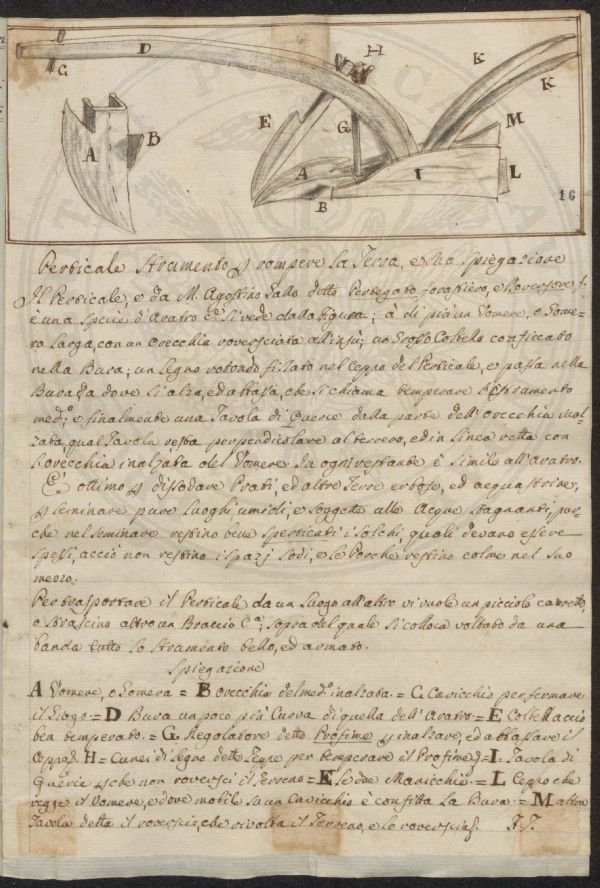 D
C
A
B
H
K
K
E
G
M
A
I
L
B
16
Perticale strumento p rompere la Terra, e sua spiegazione
Il Perticale, e da M. Agostino Gallo detto Pertegato forastiero, e Roversore
è una specie d'Aratro Co: si vede dalla figura; à di più un Vomere, o Vome-
ra larga, con un orecchia roversciata all'insù; un Coltello conficcato
nella Bura; un legno rotondo, fissato nel Ceppo del Perticale, e passa nella
Bura da dove si alza, ed abbassa, che si chiama temperare lo strumento
med.o e finalmente una Tavola di Querce dalla parte dell'orecchia inal-
zata, qual Tavola resta perpendicolare al terreno, ed in linea retta con
l'orecchia inalzata del Vomere. In ogni restante è simile all'Aratro.
E' ottimo p dissodare Prati, ed altre Terre erbose, ed acquastrine,
p seminare pure luoghi umidi, e soggetti alle Acque stagnanti, per-
che nel seminare restino bene sperticati i solchi, quali devono essere
spessi, acciò non restino i spazj sodi, e le Porche restino colme nel suo
mezzo.
Per trasportare il Perticale da un luogo all'altro vi vuole un picciolo carretto,
o strascino alto un Braccio C.a; sopra del quale si colloca voltato da una
banda tutto lo strumento bello, ed armato.
Spiegazione
A Vomere, o Vomera = B orecchia del med.o inalzata. = C. Cavicchio per fermare
il Giogo. = D Bura un poco più Curva di quella dell'Aratro. = E Coltellaccio
ben temperato. = G. Regolatore detto Profime p inalzare, ed abbassare il
Ceppo. H = Cunei di legno dette Zeppe per temperare il Profime. = I. Tavola di
Querce p che non roversci il Terreno = K le due Manicchie = L Ceppo che
regge il Vomere, e dove mobile su un Cavicchio è confitta la Bura. = M altra
Tavola detta il roverscio, che rivolta il Terreno, e lo roverscia.